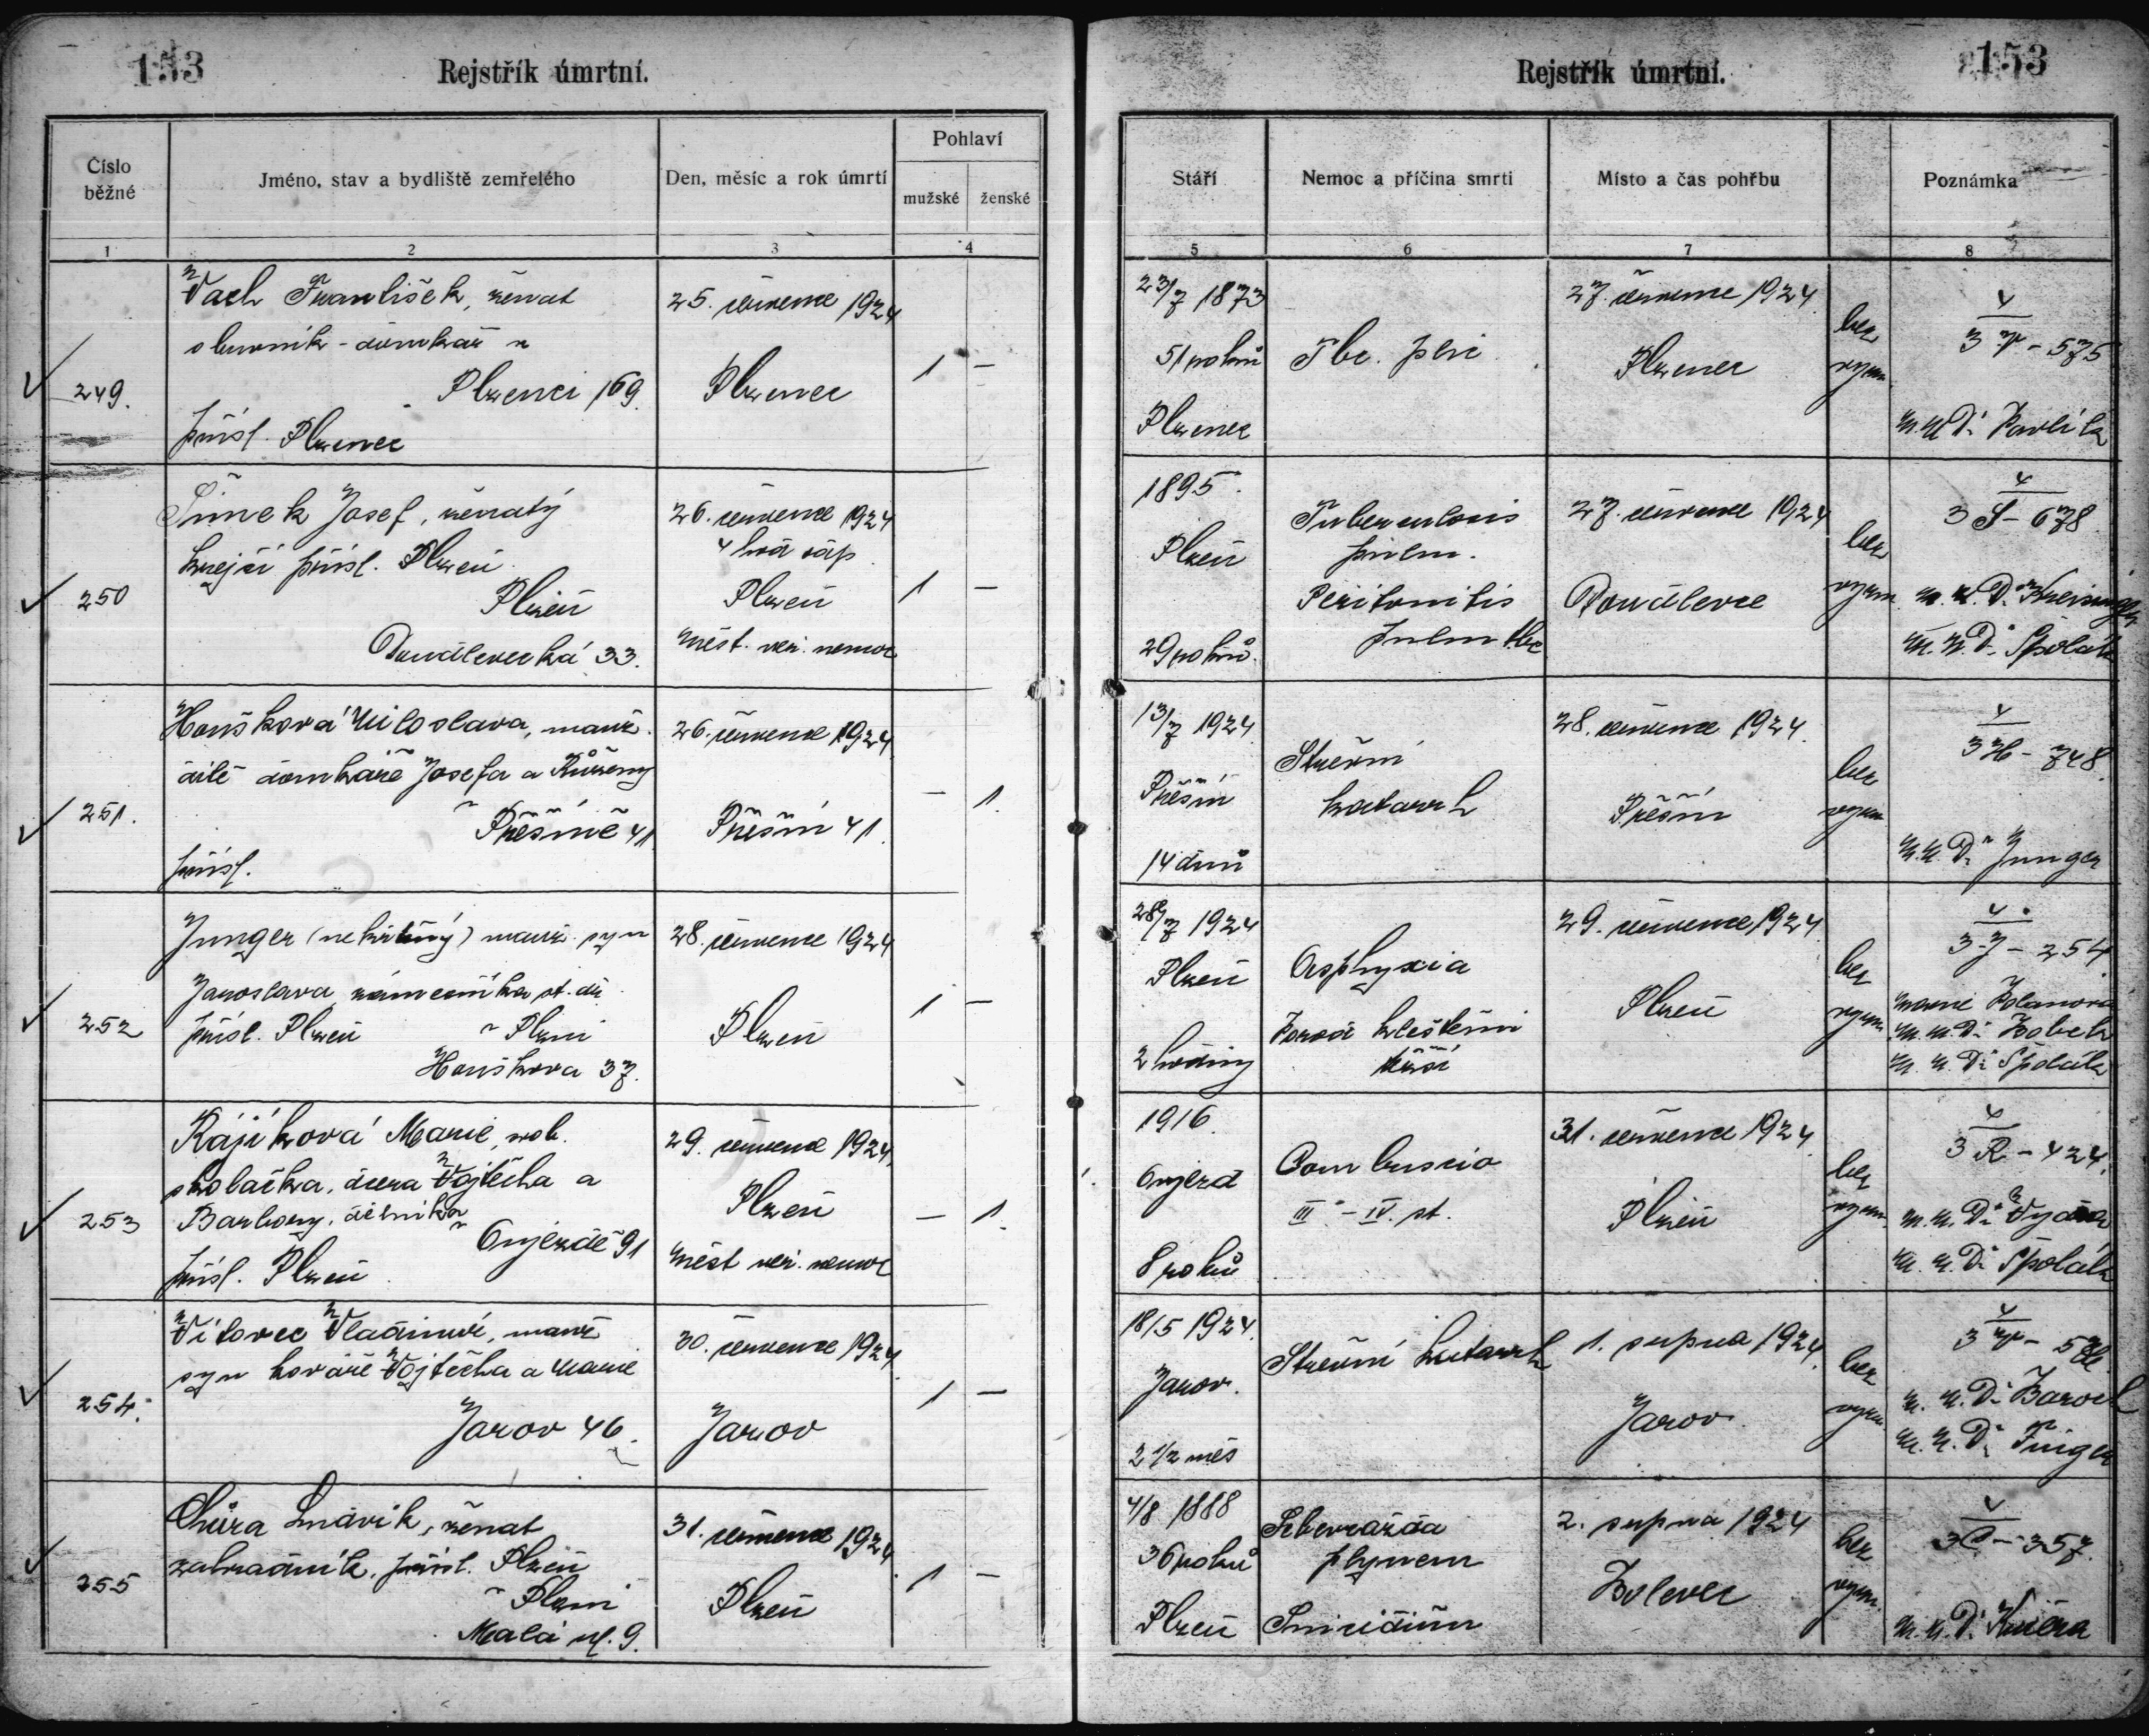 153
Rejstřík úmrtní.
Číslo běžné
Jméno, stav a bydliště zemřelého
Den, měsíc a rok úmrtí
Pohlaví
mužské
ženské
1
2
3
4
249.
Vach František, ženat
- domkář v
Plzenci 169.
přísl. Plzenec
25. července 1924
Plzenec
1 –
250
Šimek Josef, ženatý
krejčí přísl. Plzeň
Plzeň
Doudlevecká 33.
26. července 1924
4 hod odp
Plzeň
měst. veř. nemoc
1 –
251.
Houšková Miloslava, manž.
dítě domkáře Josefa a Růženy
v Přešíně 41
přísl.
26. července 1924
Přešín 41.
– 1.
252
Junger (nekřtěný) manž. syn
Jaroslava, zámečníka st. dr.
přísl. Plzeň v Plzni
Houškova 37.
28. července 1924
Plzeň
1 –
253
Rajíková Marie, svob.
školačka, dcera Vojtěcha a
Barbory, dělníka
v Oujezdě 91
přísl. Plzeň
29. července 1924
Plzeň
měst veř. nemoc
– 1.
254.
Vítovec Vladimír, manž
syn kováře Vojtěcha a Marie
Jarov 46.
30. července 1924
Jarov
1 –
255
Chůra Ludvík, ženat
zahradník, přísl. Plzeň
v Plzni
Malá ul. 9.
31. července 1924
Plzeň
1 –
153
Rejstřík úmrtní.
Stáří
Nemoc a příčina smrti
Místo a čas pohřbu
Poznámka
5
6
7
8
23/7 1873
51 roků
Plzenec
Tbc. plic
27. července 1924
Plzenec
bez
vyzn.
4
3 V – 575
m.u.Dr Pavlík
1895.
Plzeň
29 roků.
Tuberculosis
pulm.
Peritonitis
27. července 1924
Doudlevce
bez
vyzn.
4
3 S – 678
m. u. Dr Špolák
13/7 1924
Přešín
14 dnů
Střevní
katarrh
28. července 1924
Přešín
bez
vyzn.
4
3 H – 748.
m.u. Dr Junger
28/7 1924
Plzeň
2 hodiny
Asphyxia
Porod kleštěmi
29. července 1924
Plzeň
bez
vyzn.
4
3 J – 254
m. u. Dr Špolák
1916.
Oujezd
8 roků
Combuscio
III – IV. st.
31. července 1924
Plzeň
bez
vyzn.
4
3 R – 424.
m. u. Dr Špolák
18/5 1924.
Jarov.
2 1/2 měs
Střevní katarrh
1. srpna 1924.
Jarov.
bez
vyzn.
4
3 V –
m. u. Dr
4/8 1888
36 roků
Plzeň
Sebevražda
plynem
Suicidium
2. srpna 1924
Bolevec
bez
vyzn.
4
3 C – 357.
m. u. Dr Kučera